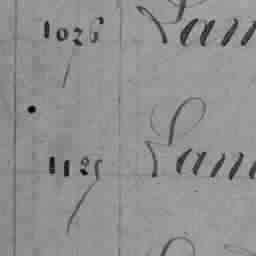 1026 Lam
1125 Lam